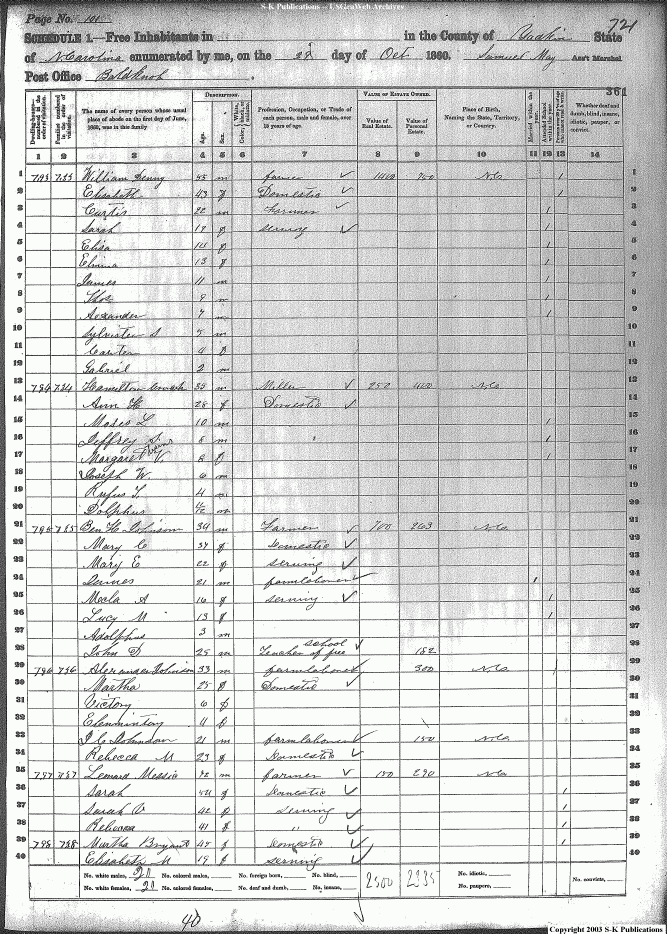 S-K Publications -- USGenWeb Archives
Page No. 101
721
SCHEDULE 1.—Free Inhabitants in in the County of Yadkin State
of N Carolina enumerated by me, on the 22 day of Oct 1860. Samuel May Ass't Marshal
Post Office Baldknob
361
DESCRIPTION. VALUE OF ESTATE OWNED.
Dwelling-houses— numbered in the order of visitation.
Families numbered in the order of visitation.
The name of every person whose usual place of abode on the first day of June, 1860, was in this family
Age.
Sex.
Color, White, black, or mulatto.
Profession, Occupation, or Trade of each person, male and female, over 15 years of age.
Value of Real Estate.
Value of Personal Estate.
Place of Birth, Naming the State, Territory, or Country.
Married within the year.
Attended School within the year.
Whether deaf and dumb, blind, insane, idiotic, pauper, or convict.
1 2 3 4 5 6 7 8 9 10 11 12 13 14
1 793 783 William 45 m farmer 700 N C 1
2 Elisabeth 43 f Domestic 2
3 Curtis 22 m Farmer 3
4 Sarah 17 f serving 4
5 Elisa 14 f 5
6 Elmina 13 f 6
7 James 11 m 7
8 Thos 9 m 8
9 Alexander 7 m 9
10 Sylvister S 5 m 10
11 4 f 11
12 Gabriel 2 m 12
13 794 784 Hamilton 35 m Miller 250 400 N C 13
14 Ann 28 f Domestic 14
15 Moses L 10 m 15
16 Jeffrey 8 m 16
17 Margaret V. 8 f 17
18 Joseph W. 6 m 18
19 Rufus T. 4 m 19
20 Dolphus m 20
21 795 785 Ben H Johnson 34 m Farmer 700 263 N C 21
22 Mary C 37 f Domestic 22
23 Mary E 22 f serving 23
24 James 21 m farmlaborer 24
25 A 16 f serving 25
26 Lucy M 13 f 26
27 Adolphus 3 m 27
28 John D 25 m Teacher of free school 182 28
29 796 786 Alexander Johnson 33 m farmlaborer 300 N C 29
30 Martha 25 f Domestic 30
31 Victory 6 f 31
32 4 f 32
33 Johnson 21 m farmlaborer 150 N C 33
34 Rebecca M 23 f Domestic 34
35 797 787 Messic 72 m farmer 150 290 N C 35
36 Sarah f Domestic 36
37 Sarah V 42 f serving 37
38 Rebecca 41 f " 38
39 798 788 Martha Bryant 47 f Domestic 39
40 Elisabeth M 19 f serving 40
No. white males, 20 No. colored males, No. foreign born, No. blind, 2500 2235 No. idiotic, No. convicts,
No. white females, 20 No. colored females, No. deaf and dumb, No. insane, No. paupers,
40
Copyright 2003 S-K Publications